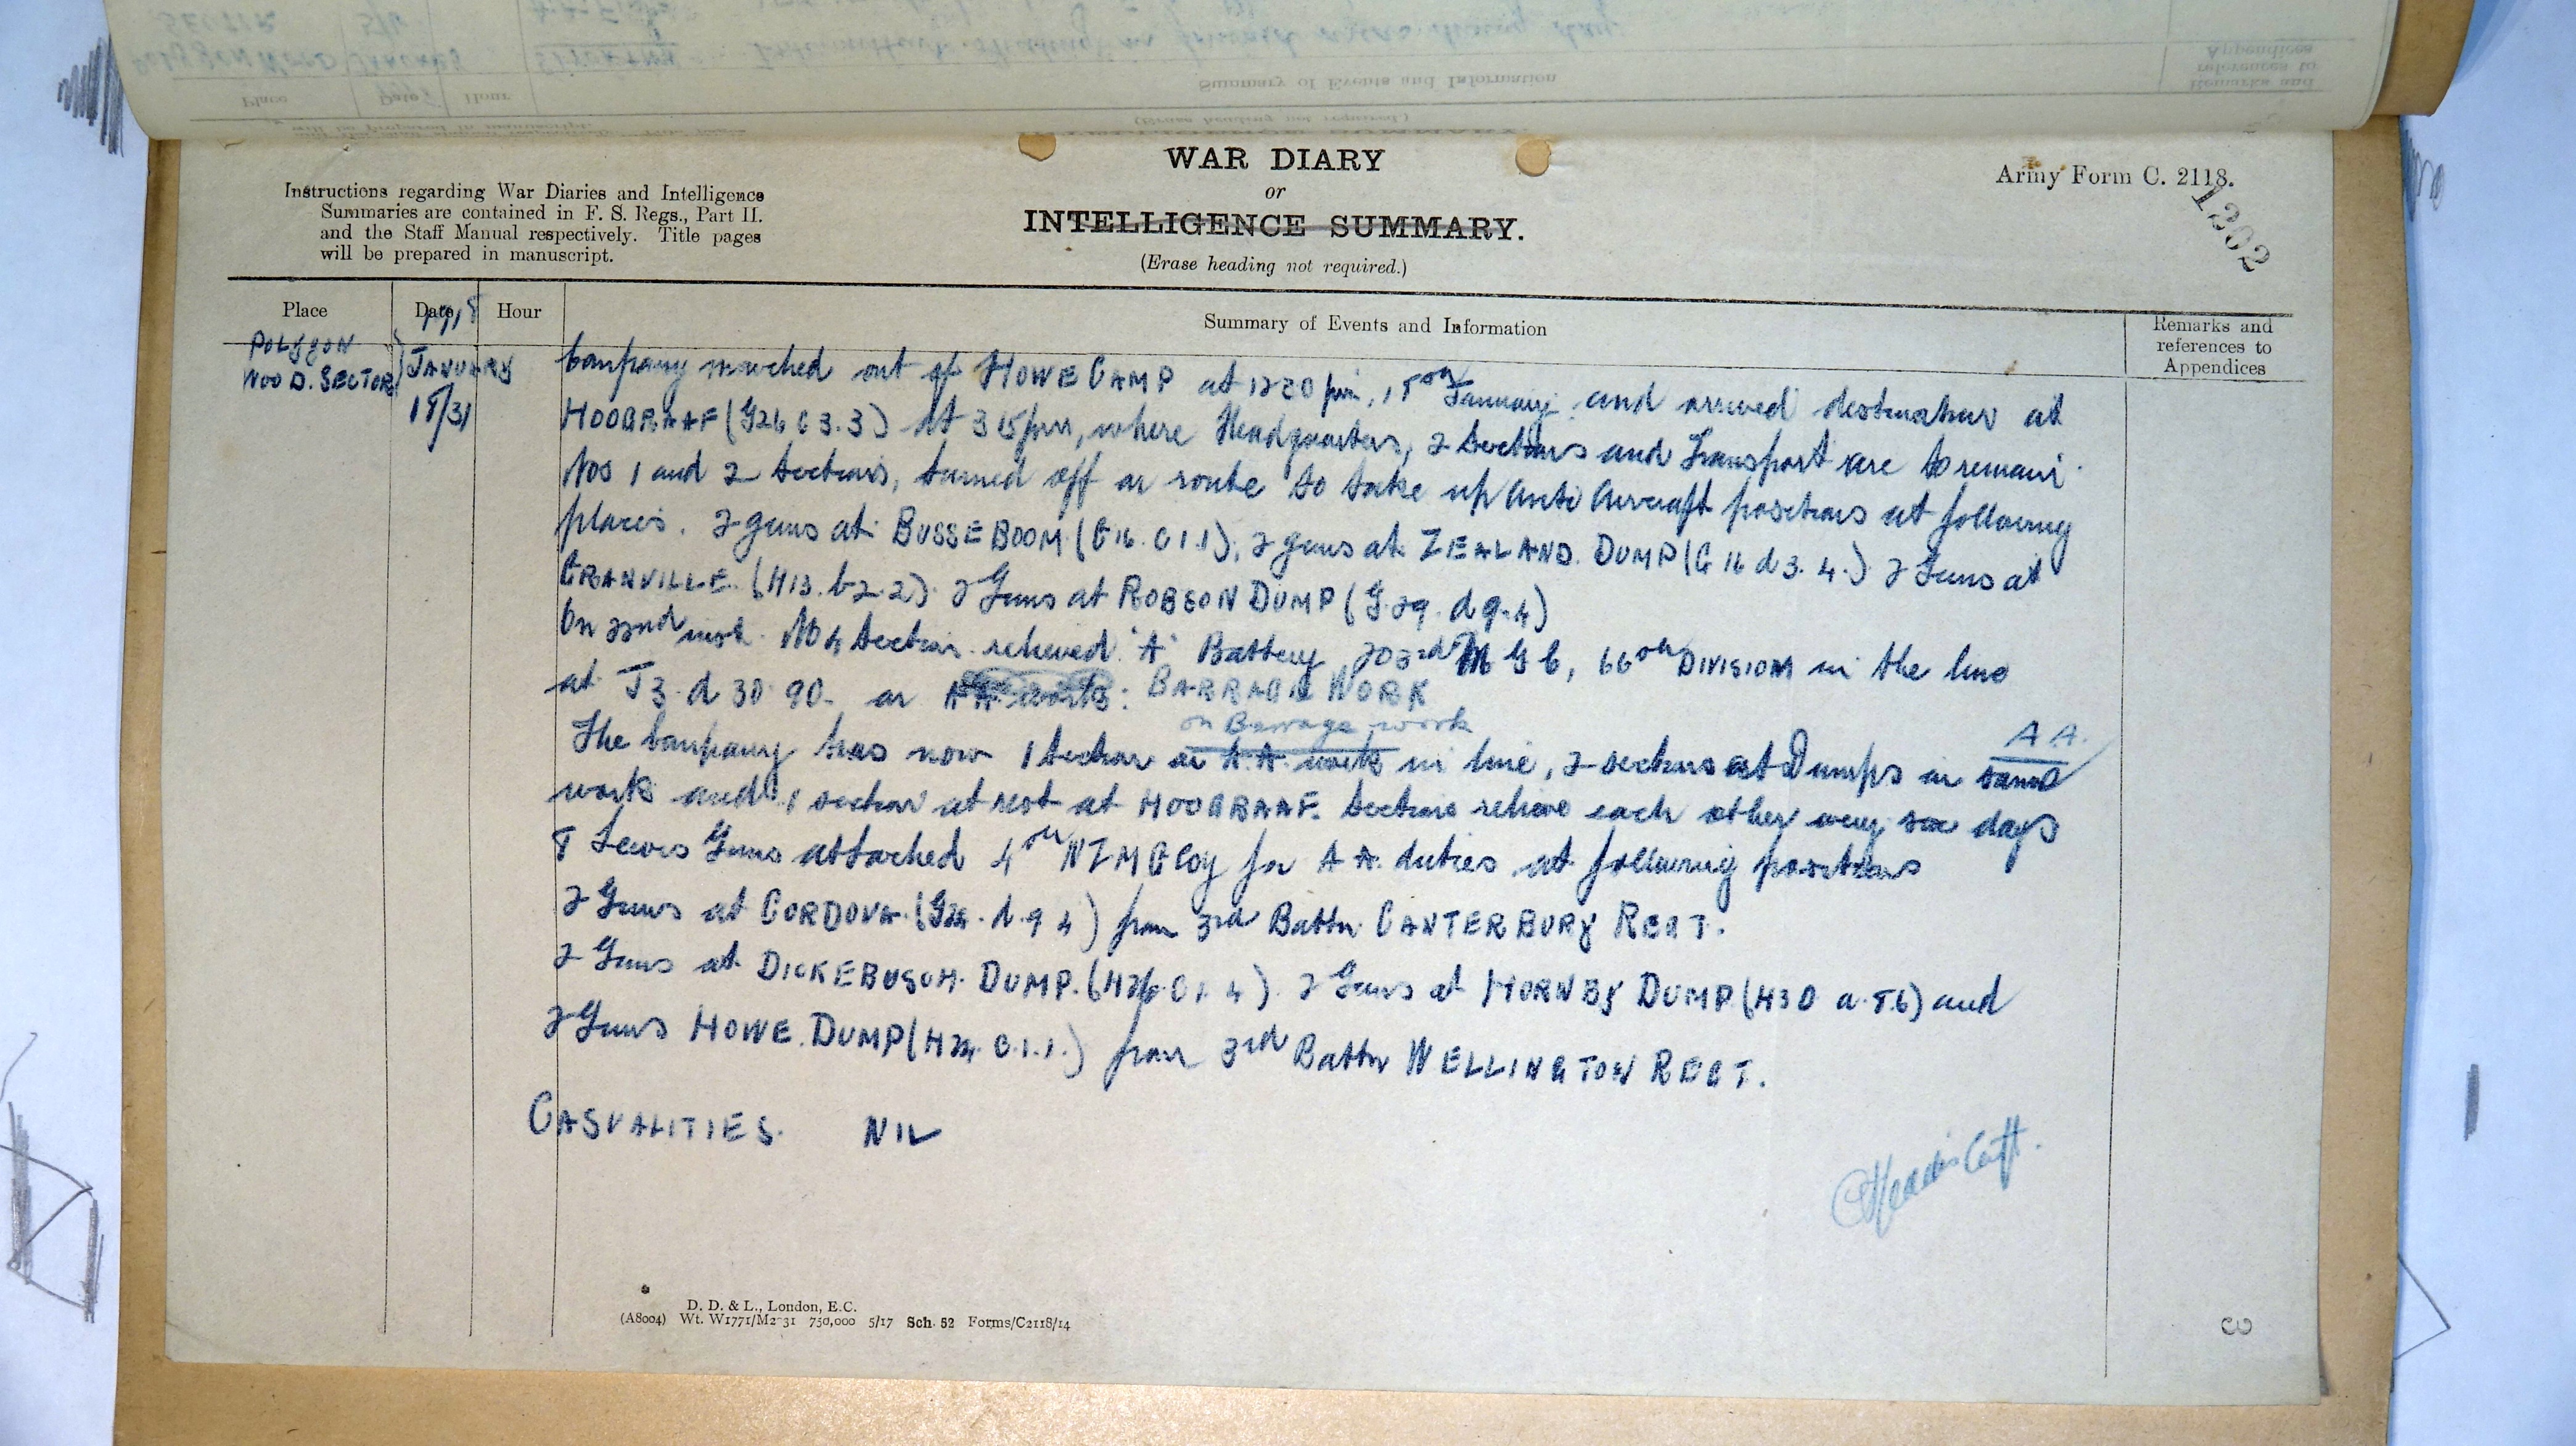 WAR DIARY
or
INTELLIGENCE SUMMARY.
(Erase heading not required.)
Instructions regarding War Diaries and Intelligence
Summaries are contained in F. S. Regs., Part II.
and the Staff Manual respectively. Title pages
will be prepared in manuscript.
Army Form C. 2118.
1302
Place Date Hour Summary of Events and Information Remarks and references to Appendices
1918
POLYGON
WOOD. SECTOR
JANUARY
18/31
Company marched out of HOWE CAMP at 1230 pm, 18th January and arrived destination at
HOOGRAAF (G26 C 3.3) at 3 15 pm, where Headquarters, 2 Sections and Transport are to remain.
Nos 1 and 2 Sections, turned off on route to take up Anti Aircraft positions at following
places. 2 guns at BUSSEBOOM (G16. C 1.1), 2 guns at ZEALAND. DUMP (G 16 d 3. 4.) 2 Guns at
GRANVILLE. (H13. b 2.2). 2 Guns at ROBSON DUMP (G.29. d 9.4)
On 22nd inst. No 4 Section relieved "A" Battery 203rd M G C, 66th DIVISION in the line
at J3. d 30 90. on AA work: BARRAGE WORK
on Barrage work
The Company has now 1 Section on A.A. work in line, 2 sections at Dumps on same A A.
work and 1 section at rest at HOOGRAAF. Sections relieve each other every six days
8 Lewis Guns attached 4th NZ M G Coy for A A. duties at following positions
2 Guns at CORDOVA. (G24. d. 9 4) from 3rd Battn CANTERBURY REGT.
2 Guns at DICKEBUSCH. DUMP. (H26. C 1. 4). 2 Guns at HORNBY DUMP (H30 a. 8.6) and
2 Guns HOWE. DUMP (H24. C.1.1.) from 3rd Battn WELLINGTON REGT.
CASUALITIES. NIL
Capt.
D. D. & L., London, E.C.
(A8004) Wt. W1771/M2-31 750,000 5/17 Sch. 52 Forms/C2118/14
3